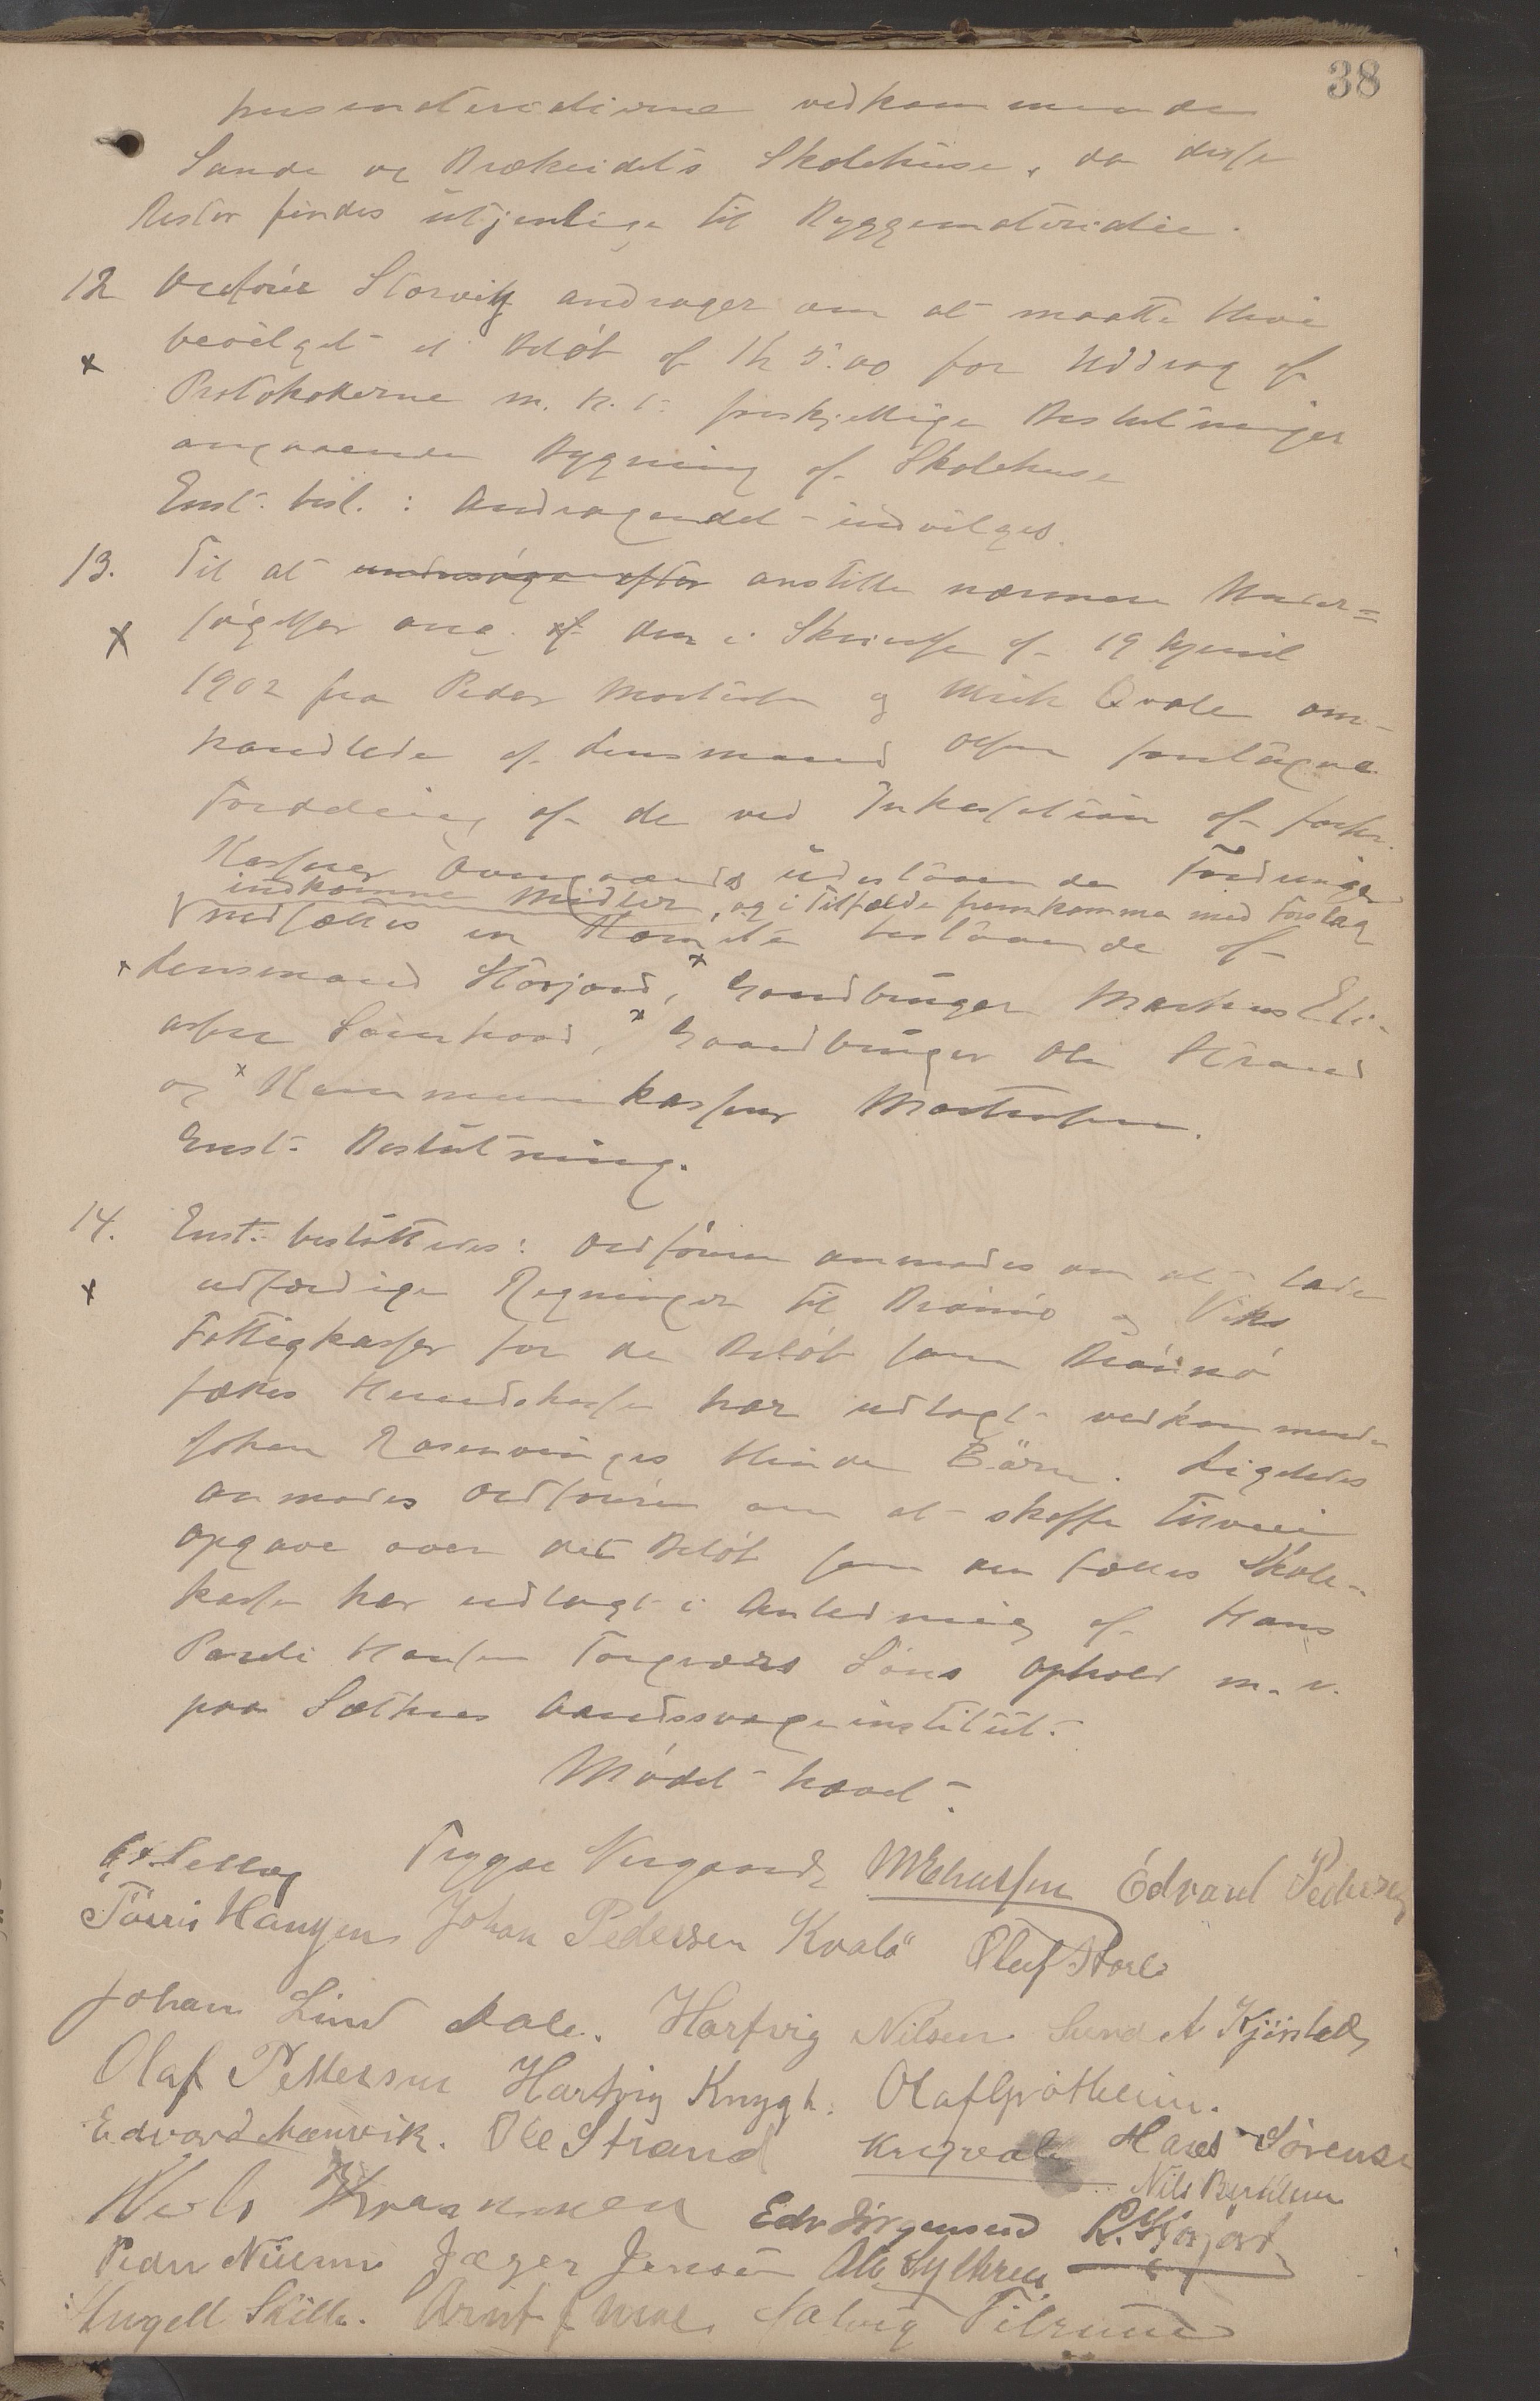 38
husmaterialierne vedkommende
Sande og Brækeidets Skolehuse, da disse
Rester findes utjenlige til Byggematerialie.
12 Ordfører Storvik andrager om at maatte blive
bevilget et Beløb af Kr 5.00 for Uddrag af
Protokollerne m. H. t. forskjellige Beslutninger
angaaende Bygning af Skolehuse
Enst. besl.: Andragendet indvilges.
13. Til at undersøge efter anstille nærmere Under=
søgelser ang. af den i Skrivelse af 19 April
1902 fra Peder Mortensen og Qvale om-
handlede af Lensmand Olsen foretagne
Fordeling af de ved Inkassation af forh.
Kasser Overgaards udestaaende Fordringer
indkomne Midler, og i Tilfælde fremkomme med Forslag
nedsættes en Komite bestaaende af
Lensmand Storjord, Gaardbruger Markus Eli-
assen Sørnhoved, Gaardbruger Ole Strand
og Kommunekasserer Mortensen.
Enst. Beslutning.
14. Enst. besluttedes: Ordføreren anmodes om at lade
udfærdige Regninger til Brønnø og Viks
Fattigkasser for de Beløb som Brønnø
fælles Herredskasse har udlagt vedkommende
Johan Rosenvinges blinde Børn. Ligeledes
anmodes Ordføreren om at skaffe tilveie
Opgave over det Beløb som den fælles Skole-
kasse har udlagt i Anledning af Hans
Hansen Torgværs Søns Ophold m. v.
paa Sæthres Aandssvageinstitut.
Mødet hævet.
Trygve Nergaard Edvard Pedersen
Tørris Haugen Johan Pedersen Kvalø Oluf
Johan Lind Dale. Hartvig Nilsen Sund A Kjørstad
Olaf Pettersen Hartvig Knygh. Olaf Grøtheim.
Edvard Ole Strand Hans Sørensen
Nils
Edv Jørgensen
Peder Nilsen Jæger Jensen Ole
Arnt Tilrem